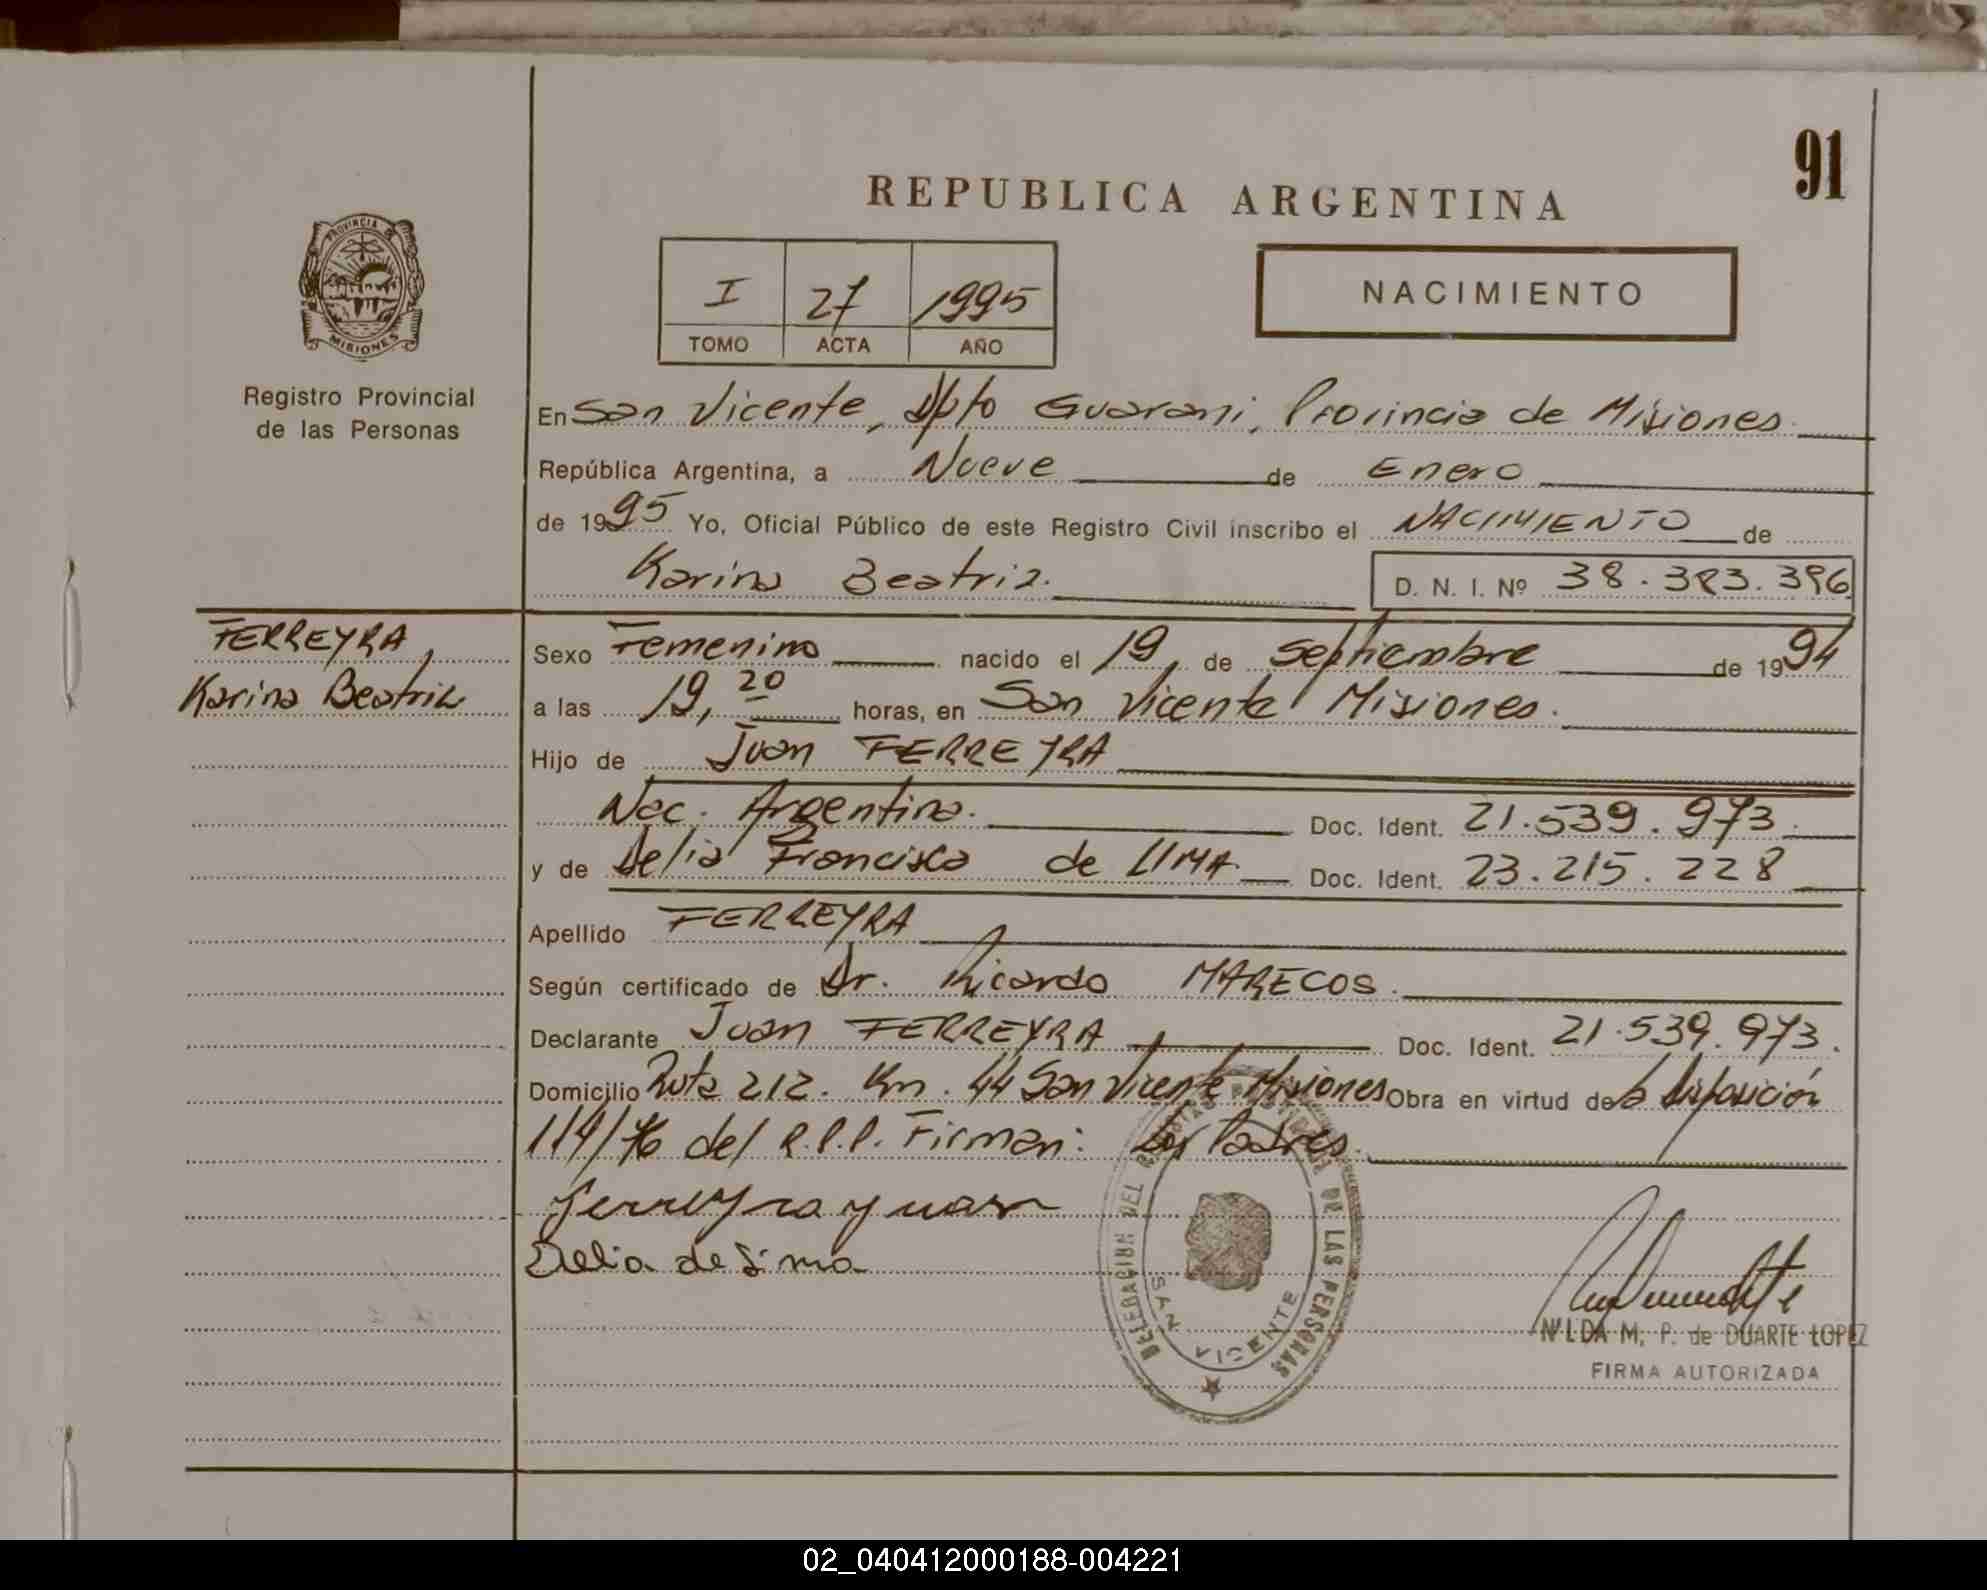 91
REPUBLICA ARGENTINA
PROVINCIA DE
MISIONES
I 27 1995
TOMO ACTA AÑO
NACIMIENTO
Registro Provincial
de las Personas
En San Vicente, Dpto Guarani, Provincia de Misiones.
República Argentina, a Nueve de Enero
de 1995 Yo, Oficial Público de este Registro Civil inscribo el NACIMIENTO de
Karina Beatriz. D. N. I. Nº 38.383.396
FERREYRA,
Karina Beatriz
Sexo Femenino nacido el 19, de Septiembre de 1994
a las 19,20 horas, en San Vicente Misiones.
Hijo de Juan FERREYRA
Nac. Argentina. Doc. Ident. 21.539.973.
y de Delia Francisca de LIMA. Doc. Ident. 23.215.228
Apellido FERREYRA
Según certificado de Dr. Ricardo MARECOS.
Declarante Juan FERREYRA Doc. Ident. 21.539.973.
Domicilio Ruta 212. Km. 44 San Vicente Misiones Obra en virtud de la Disposición
114/76 del R.P.P. Firman: Los Padres.
Ferreyra Juan
Delia de Lima
DELEGACION DEL DE LAS PERSONAS
SAN VICENTE
NILDA M. P. de DUARTE LOPEZ
FIRMA AUTORIZADA
02_040412000188-004221